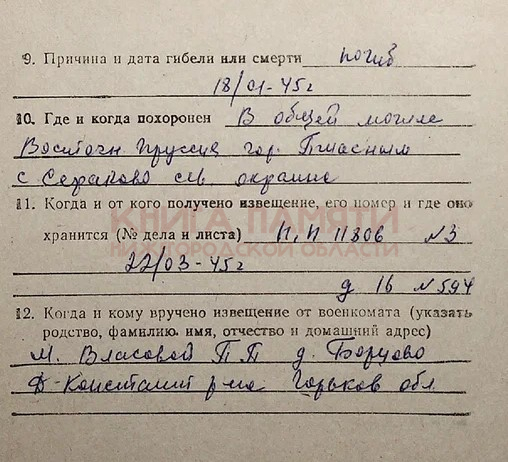 9. Причина и дата гибели или смерти погиб
18/01-45г
10. Где и когда похоронен В общей могиле
Восточн Пруссия гор.
с Серапово сев. окраине
11. Когда и от кого получено извещение, его номер и где оно
КНИГА ПАМЯТИ
хранится (№ дела и листа) П/П 11806 №3
НИЖЕГОРОДСКОЙ ОБЛАСТИ
22/03-45г
д 16 №594
12. Когда и кому вручено извещение от военкомата (указать
родство, фамилию, имя, отчество и домашний адрес)
М. Власовой П.П д. Борцово
Д-Константин р-на Горьков обл